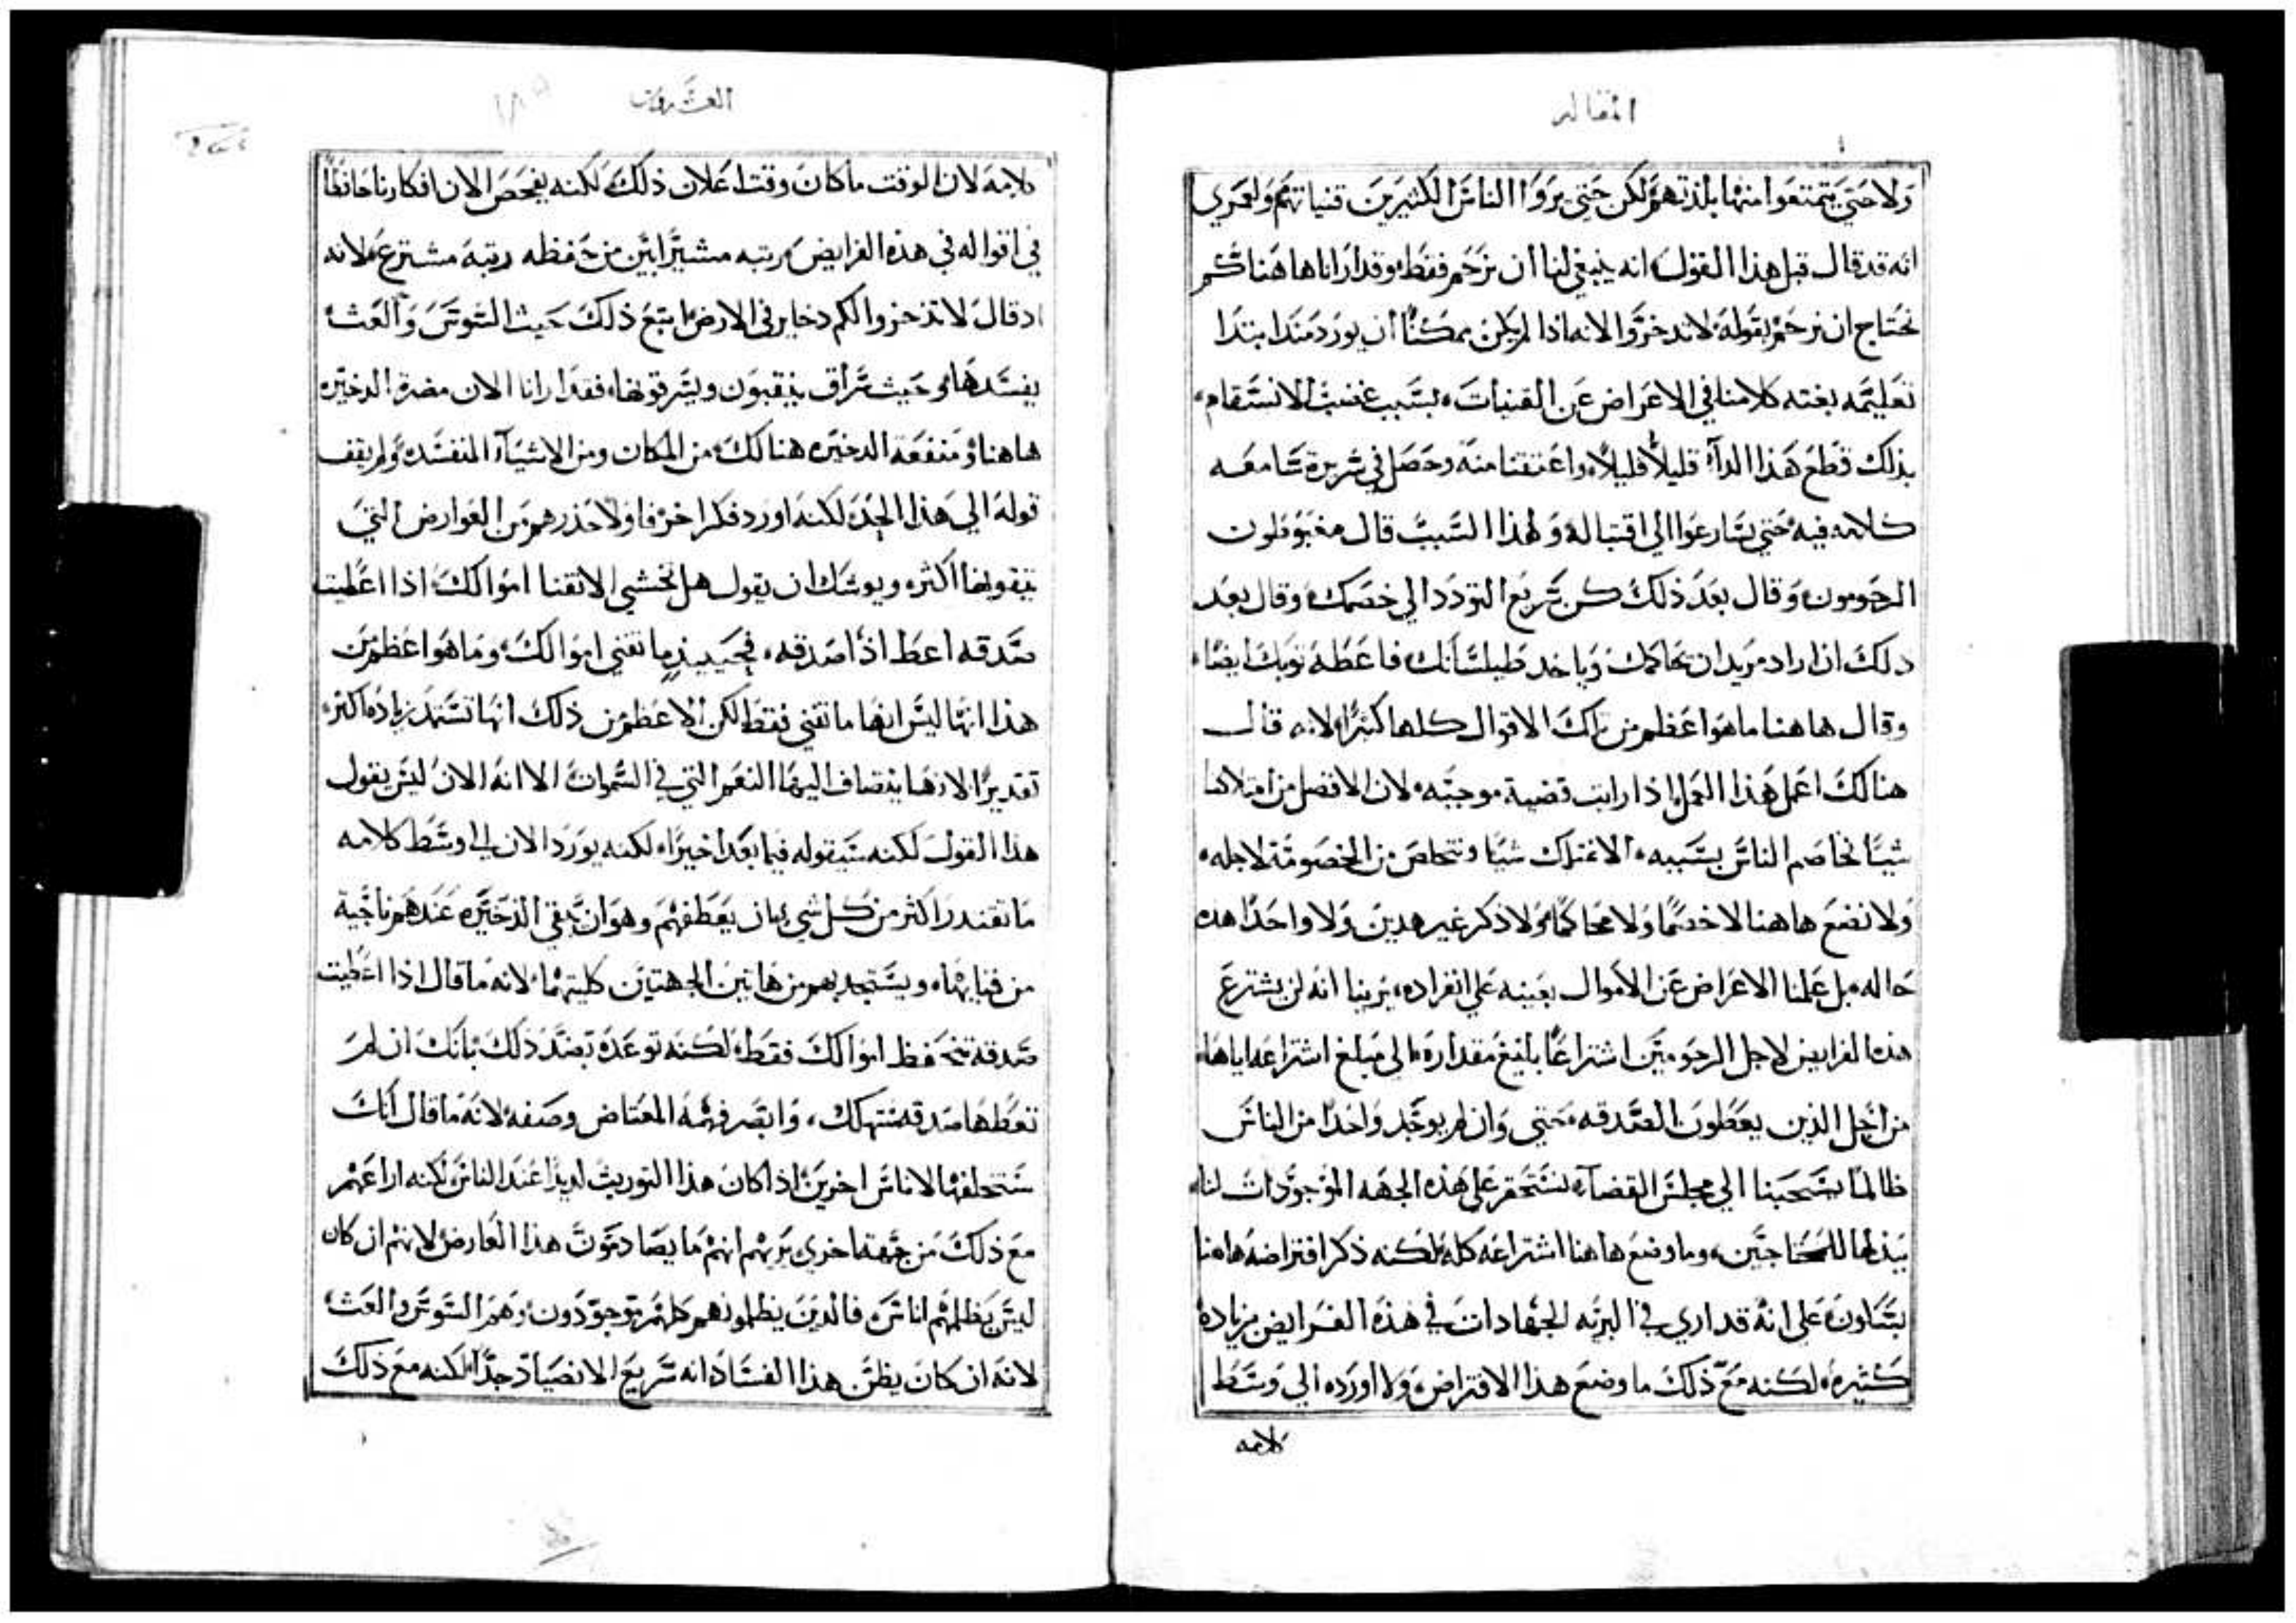 المقاله
ولا حتي يتمتعوا منها بلذتهم، لكن حتي يروا الناس الكثيرين قنياتهم ولعمري
انه قد قال قبل هذا القول، انه ينبغي لنا ان نرحم فقط، وقد ارانا هاهنا كم
نحتاج ان نرحم بقوله لاتدخروا لانه اذا لم يكن ممكناً ان يورد منذ ابتدا
تعليمه بغته كلامنا في الاعراض عن القنيات، بسبب غضب الانسقام،
بذلك قطع هذا الدآء قليلاً قليلاً، واعتقنا منه وحصل في سريرة سامعه
كلامه فيه حتي يسارعوا الي اقتباله ولهذا السبب قال مغبوطون
الرحومون، وقال بعد ذلك كن سريع التودد الي خصمك، وقال بعد
دلك ان اراد مريد ان يحاكمك وياخد طيلسانك فاعطه ثوبك ايضا،
وقال هاهنا ماهو اعظم من تلك الاقوال كلها كثيرا، لانه قال
هنالك اعمل هذا العمل اذا رايت قضية موجبه، لان الافضل من امتلاكنا
شيئا نخاصم الناس بسببه، الا نمتلك شيئا ونتخلص من الخصومة لاجله،
ولانضع هاهنا لا خصما ولا محاكما، ولا ذكر غير هدين ولا واحدا هذه
حاله، بل علمنا الاعراض عن الاموال بعينه علي انفراده، يرينا انه لن يشترع
هذه الفرايض لاجل المرحومين اشتراعا بالغ مقداره، الي مبلغ اشتراعه اياها
من اجل الذين يعطون الصدقه، حتي وان لم يوجد واحدا من الناس
ظالما يسحبنا الي مجلس القضآء، لنستحقر علي هذه الجهه الموجودات لنا،
ببذلها للمحتاجين، وما وضع هاهنا اشتراعه كله لكنه ذكر افتراضه هاهنا
بتهاون، علي انه قد اري في البريه الجهادات في هذه الفرايض بزيادة
كثيره، لكنه مع ذلك ما وضع هذا الافتراض، ولا اورده الي وسط
كلامه
العشرون
كلامه لان الوقت ماكان وقت اعلان ذلك، لكنه يفحص الان افكارنا حافظا
في اقواله في هذه الفرايض، رتبه مشيرا بين من حفظه رتبة مشترع، لانه
اد قال لاتذخروا لكم دخاير في الارض، اتبع ذلك حيث السوس والعث
يفسدها، وحيث سراق ينقبون ويسرقونها، فقد ارانا الان مضرة الدخيره
هاهنا، ومنفعة الدخيره هنالك، من المكان ومن الاشيآء المفسده، ولم يقف
قوله الي هذا الحد، لكنه اورد فكرا اخر فاولا حذرهم من العوارض التي
يتقونها اكثر، ويوشك ان يقول هل تخشي الا تفنا اموالك، اذا اعطيت
صدقه اعط اذا صدقه، فحينيذ ما تفني اموالك، وما هو اعظم من
هذا انها ليس انها ما تفني فقط، لكن الاعظم من ذلك انها تستمد زيادة اكثر
تقديرا، لانها ينضاف اليها النعم التي في السموات الا انه الان ليس يقول
هذا القول، لكنه سيقوله فيما بعد اخيرا، لكنه يورد الان الي وسط كلامه
ما تقتدر اكثر من كل شي بان يعطفهم وهو ان تبقي الذخيره عندهم ناجية
من فنايها، ويستجد بهم من هاتين الجهتين كليتهما، لانه ما قال اذا اعطيت
صدقة تحفظ اموالك فقط، لكنه توعده بضد ذلك بانك ان لم
تعطها صدقه ستهلك، وابصر فهمه المعتاض وصفه لانه ما قال انك
ستخلفها لاناس اخرين، اذا كان هذا التوريث لديدا عند الناس، لكنه اراعهم
مع ذلك من جهة اخري يريهم انهم ما يصادمون هذا العارض، لانهم ان كان
ليس يظلمهم اناس، فالذين يظلمونهم كلهم موجودون، وهم السوس والعث
لانه ان كان يظن هذا الفساد انه سريع الانصياد جدا، لكنه مع ذلك